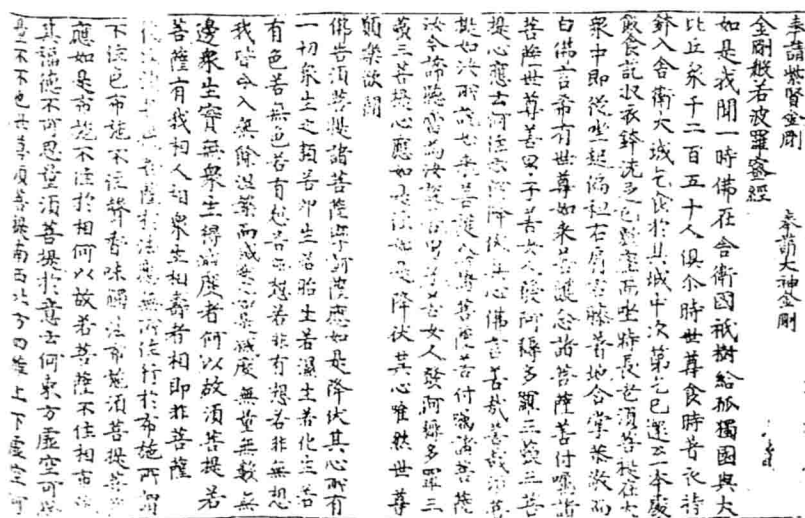 奉請紫賢金剛　奉請大神金剛
金剛般若波羅蜜經
如是我聞一時佛在舍衛國祇樹給孤獨園與大
比丘眾千二百五十人俱尒時世尊食時著衣持
鉢入舍衛大城乞食於其城中次第乞已還至本處
飯食訖收衣鉢洗足已敷座而坐時長老須菩提在大
眾中即從坐起偏袒右肩右膝著地合掌恭敬而
白佛言希有世尊如來善護念諸菩薩善付囑諸
菩薩世尊善男子善女人發阿耨多羅三藐三菩
提心應云何住云何降伏其心佛言善哉善哉須菩
提如汝所說如來善護念諸菩薩善付囑諸菩薩
汝今諦聽當為汝說善男子善女人發阿耨多羅三
藐三菩提心應如是住如是降伏其心唯然世尊
願樂欲聞
佛告須菩提諸菩薩摩訶薩應如是降伏其心所有
一切眾生之類若卵生若胎生若濕生若化生若
有色若無色若有想若無想若非有想若非無想
我皆令入無餘涅槃而滅度之如是滅度無量無數無
邊眾生實無眾生得滅度者何以故須菩提若
菩薩有我相人相眾生相壽者相即非菩薩
復次須菩提菩薩於法應無所住行於布施所謂
不住色布施不住聲香味觸法布施須菩提菩薩
應如是布施不住於相何以故若菩薩不住相布施
其福德不可思量須菩提於意云何東方虛空可思
量不不也世尊須菩提南西北方四維上下虛空可